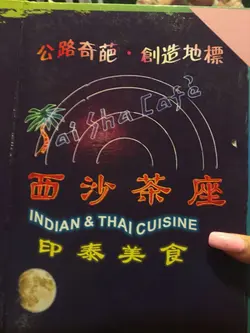 公路奇葩·創造地標
Tai Sha Cafe
西沙茶座
INDIAN & THAI CUISINE
印泰美食